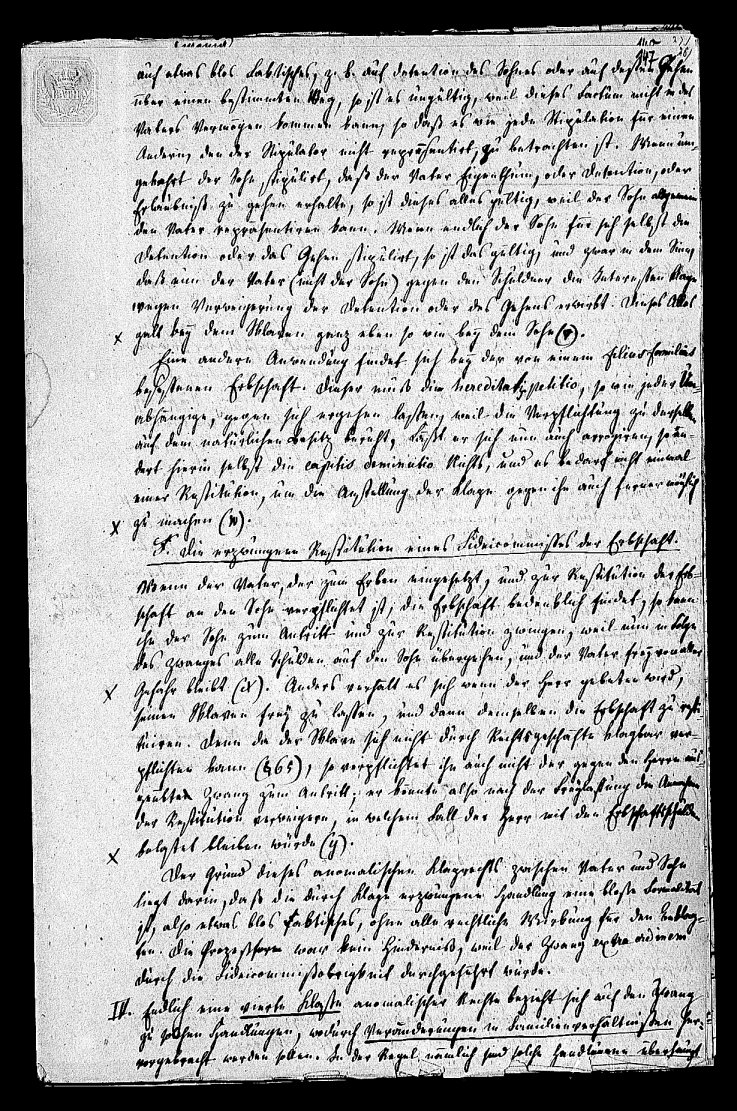 147
auf etwas blos Faktisches, z. B. auf Detention des Sohnes oder auf dessen Gehen
über einen bestimmten Weg, so ist es ungültig, weil dieses Factum nicht in des
Vaters Vermögen kommen kann, so daß es wie jede Stipulation für einen
Andern, den der Stipulator nicht repräsentirt, zu betrachten ist. Wenn um-
gekehrt der Sohn stipulirt, daß der Vater Eigenthum, oder Detention, oder
Erlaubniß zu gehen erhalte, so ist dieses alles gültig, weil der Sohn allgemein
den Vater repräsentiren kann. Wenn endlich der Sohn für sich selbst die
Detention oder das Gehen stipulirt, so ist das gültig, und zwar in dem Sinn,
daß nun der Vater (nicht der Sohn) gegen den Schuldner die Interessenklage
wegen Verweigerung der Detention oder des Gehens erwirbt. Dieses Alles
x gilt bey dem Sklaven ganz eben so wie bey dem Sohn (v).
Eine andere Anwendung findet sich bey der von einem filiusfamilias
besessenen Erbschaft. Dieser muß die hereditatis petitio, so wie jeder Un-
abhängige, gegen sich ergehen lassen, weil die Verpflichtung zu derselben
auf dem natürlichen Besitz beruht. Läßt er sich nun auch arrogiren, so än-
dert hierin selbst die capitis deminutio Nichts, und es bedarf nicht einmal
einer Restitution, um die Anstellung der Klage gegen ihn auch ferner möglich
x zu machen (w).
F. Die erzwungene Restitution eines Fideicommisses der Erbschaft.
Wenn der Vater, der zum Erben eingesetzt, und zur Restitution der Erb-
schaft an den Sohn verpflichtet ist, die Erbschaft bedenklich findet, so kann
ihn der Sohn zum Antritt und zur Restitution zwingen, weil nun in Folge
des Zwanges alle Schulden auf den Sohn übergehen, und der Vater frey von aller
x Gefahr bleibt (x). Anders verhält es sich wenn der Herr gebeten wird,
seinen Sklaven frey zu lassen, und dann demselben die Erbschaft zu resti-
tuiren. Denn da der Sklave sich nicht durch Rechtsgeschäfte klagbar ver-
pflichten kann (§ 65), so verpflichtet ihn auch nicht der gegen den Herrn aus-
geübte Zwang zum Antritt; er könnte also nach der Freylassung die Annahme
der Restitution verweigern, in welchem Fall der Herr mit den Erbschaftsschulden
x belastet bleiben würde (y).
Der Grund dieses anomalischen Klagrechts zwischen Vater und Sohn
liegt darin, daß die durch Klage erzwungene Handlung eine bloße Formalität
ist, also etwas blos Faktisches, ohne alle rechtliche Wirkung für den Beklag-
ten. Die Prozeßform war kein Hinderniß, weil der Zwang extra ordinem
durch die Fideicommißobrigkeit durchgeführt wurde.
IV. Endlich eine vierte Klasse anomalischer Rechte bezieht sich auf den Zwang
zu solchen Handlungen, wodurch Veränderungen in Familienverhältnissen her-
vorgebracht werden sollen. In der Regel nämlich sind solche Handlungen überhaupt